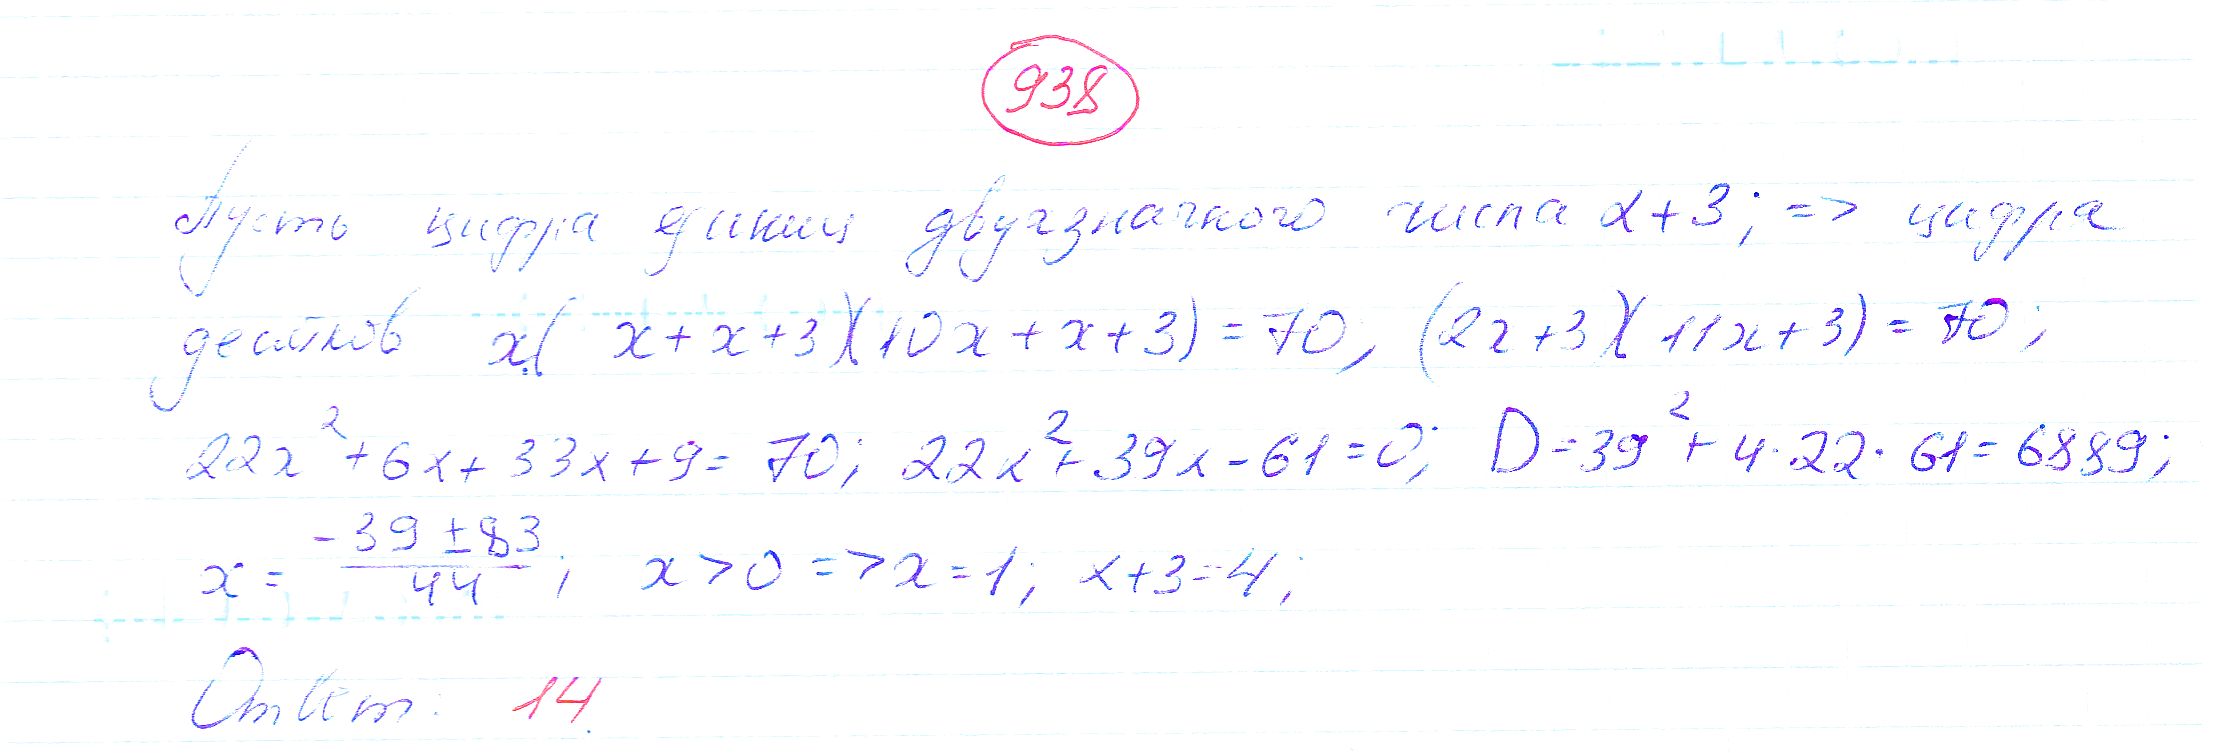 938
Пусть цифра единиц двухзначного числа x+3; => цифра
десятков x. (x+x+3)(10x+x+3)=70, (2x+3)(11x+3)=70;
22x²+6x+33x+9=70; 22x²+39x-61=0; D=39²+4·22·61=6889;
x = (-39±83)/44; x>0 => x=1; x+3=4;
Ответ: 14.